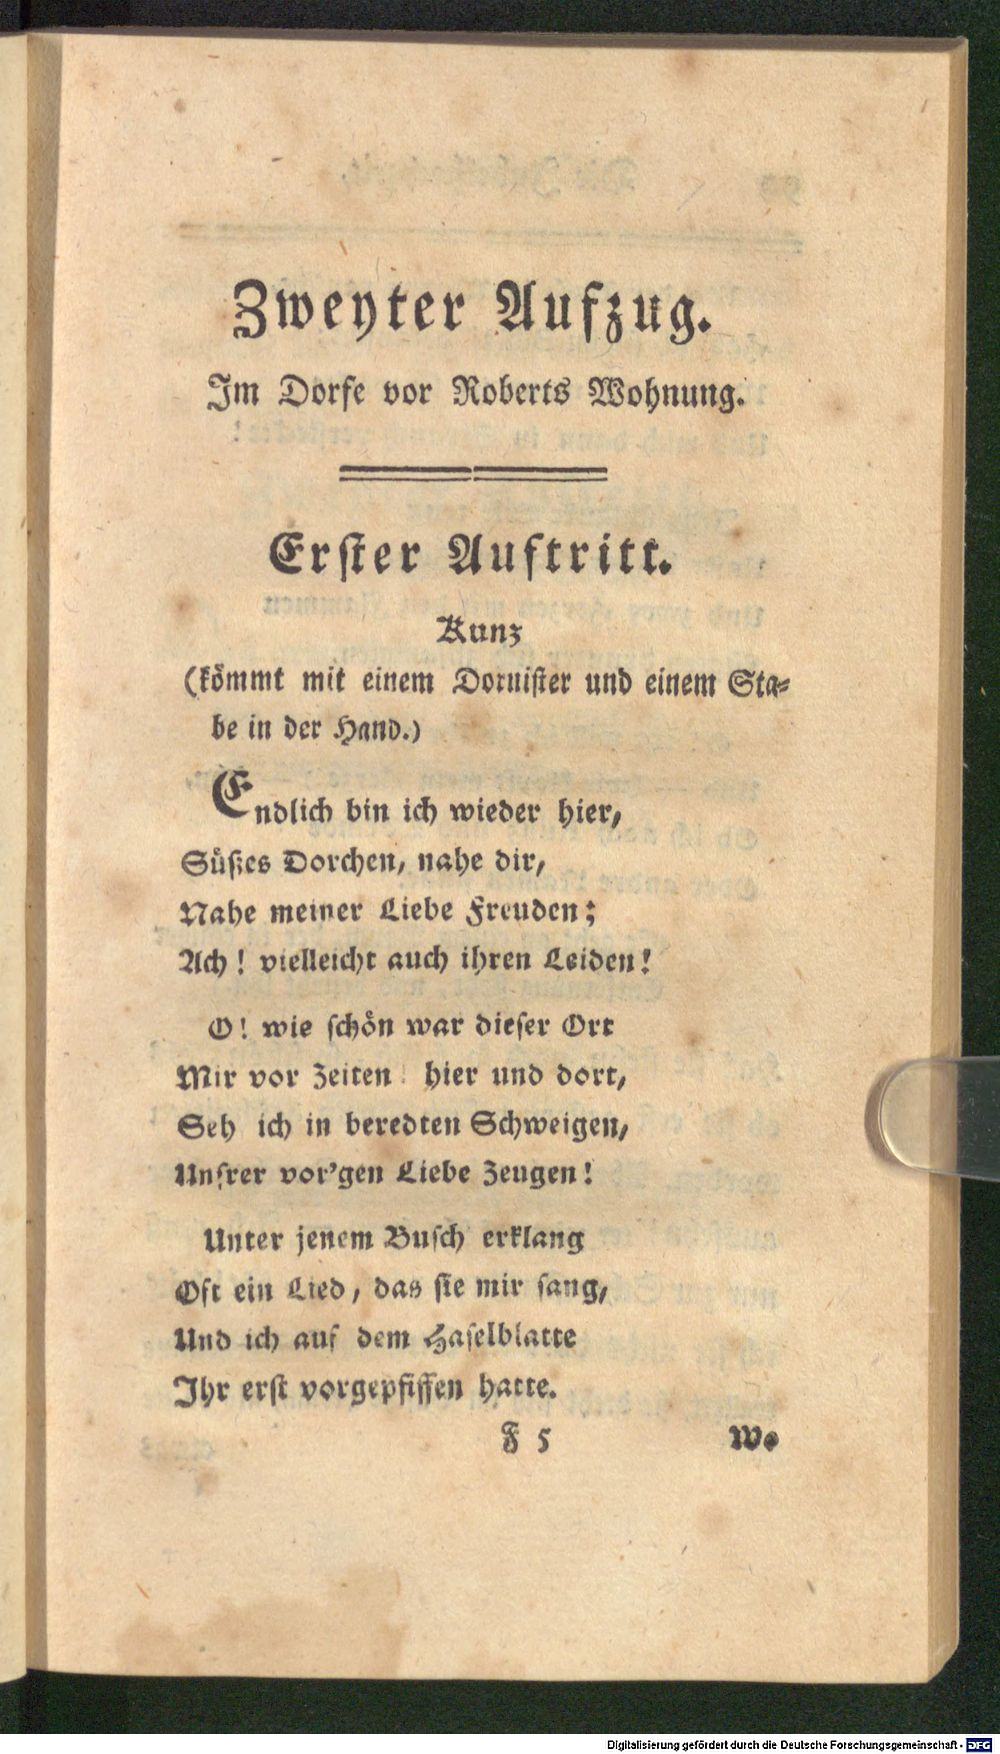 Zweyter Aufzug.
Im Dorfe vor Roberts Wohnung.
Erster Auftritt.
Kunz
(kömmt mit einem Dornister und einem Sta-
be in der Hand.)
Endlich bin ich wieder hier,
Süßes Dorchen, nahe dir,
Nahe meiner Liebe Freuden;
Ach! vielleicht auch ihren Leiden!
O! wie schön war dieser Ort
Mir vor Zeiten hier und dort,
Seh ich in beredten Schweigen,
Unsrer vor'gen Liebe Zeugen!
Unter jenem Busch erklang
Oft ein Lied, das sie mir sang,
Und ich auf dem Haselblatte
Ihr erst vorgepfiffen hatte.
F 5 W.
Digitalisierung gefördert durch die Deutsche Forschungsgemeinschaft - DFG